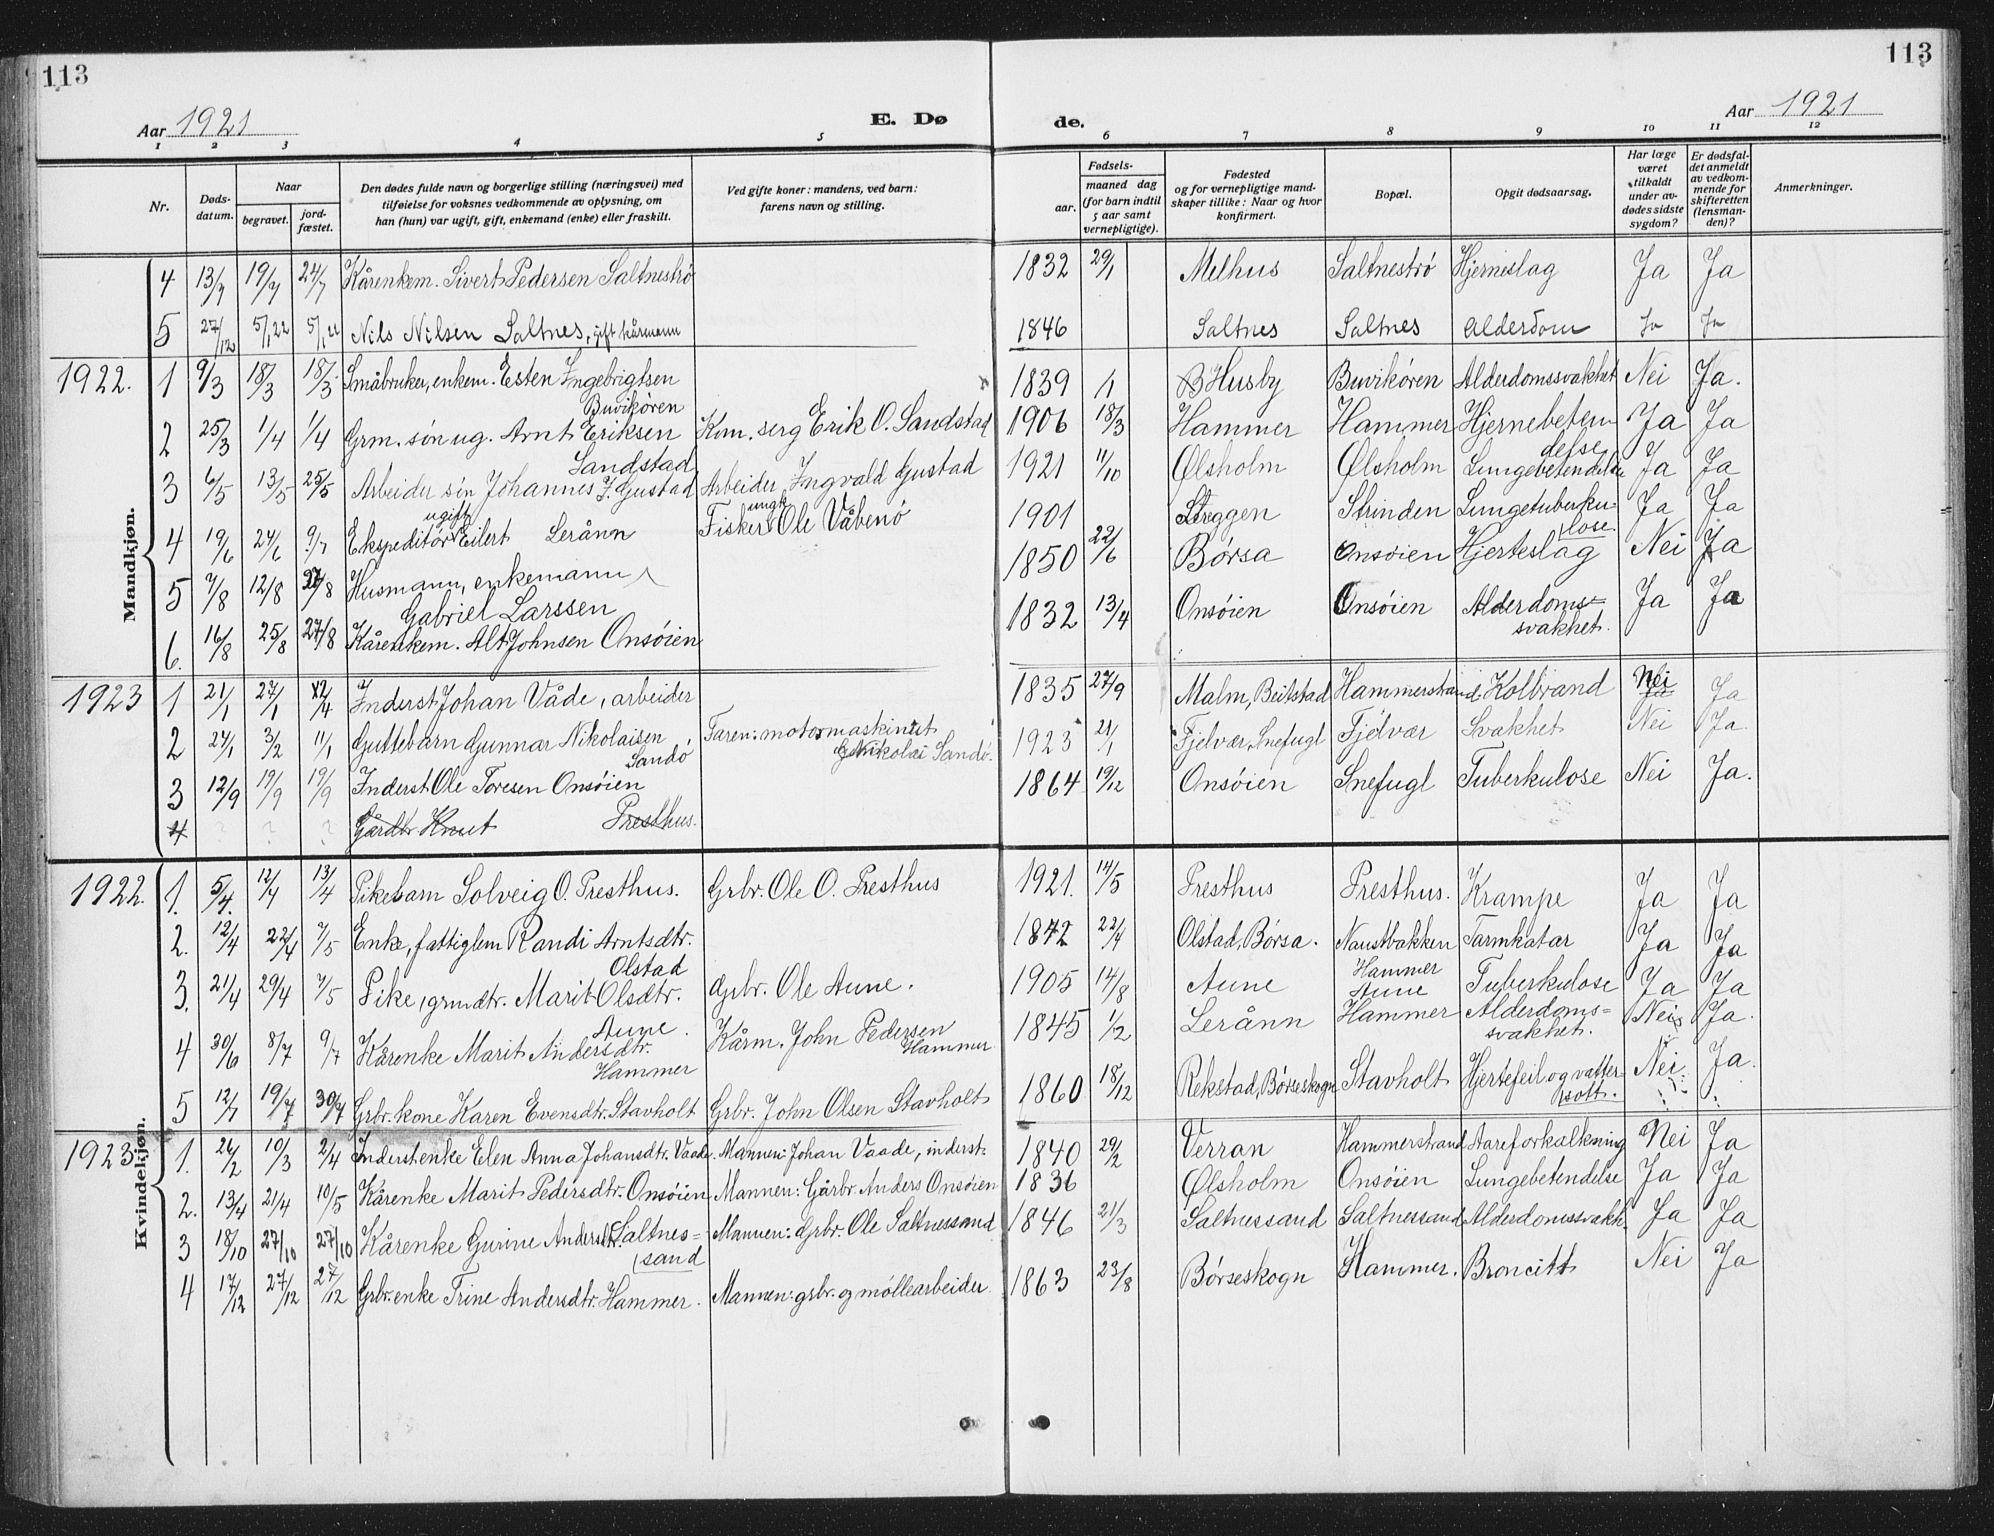 113
113
Aar 1921
E. Dø
de.
Aar 1921
1 2 3 4 5 6 7 8 9 10 11 12
Nr.
Døds-
datum.
Naar
begravet.
jord-
fæstet.
Den dødes fulde navn og borgerlige stilling (næringsvei) med
tilføielse for voksnes vedkommende av oplysning, om
han (hun) var ugift, gift, enkemand (enke) eller fraskilt.
Ved gifte koner: mandens, ved barn:
farens navn og stilling.
Fødsels-
aar.
maaned dag
(for barn indtil
5 aar samt
vernepligtige).
Fødested
og for vernepligtige mand-
skaper tillike: Naar og hvor
konfirmert.
Bopæl.
Opgit dødsaarsag.
Har læge
været
tilkaldt
under av-
dødes sidste
sygdom?
Er dødsfal-
det anmeldt
av vedkom-
mende for
skifteretten
(lensman-
den)?
Anmerkninger.
Mandkjøn.
4 13/7 19/7 24/7 Kårenkem. Sivert Pedersen Saltnestrø 1832 29/1 Melhus Saltnestrø Hjerneslag Ja Ja
5 27/12 5/1 22 5/1 22 Nils Nilsen Saltnes, gift kårmann 1846 Saltnes Saltnes Alderdom Ja Ja
1922. 1 9/3 18/3 18/3 Småbruker, enkem. Esten Ingebrigtsen
Buvikören
1839 /1 Husby Buvikören Alderdomssvakhet Nei Ja.
2 25/3 1/4 1/4 Grm. sön ug. Arnt Eriksen
Sandstad
Kom. serg Erik O. Sandstad 1906 18/3 Hammer Hammer Hjernebeten
delse
Ja Ja
3 6/5 13/5 25/5 Arbeider sön Johannes I. Gustad Arbeider Ingvald Gustad 1921 11/10 Ølsholm Ølsholm Lungebetendelse Ja Ja
4 19/6 24/6 9/7 Ekspeditör ugift Eilert Lerånn Fisker ungk. Ole Våbenö 1901 Steggen Strinden Lungetuberku
lose
Ja Ja
5 7/8 12/8 27/8 Husmann, enkemann
Gabriel Larssen
1850 22/6 Børsa Onsøien Hjerteslag Nei Ja
6. 16/8 25/8 27/8 Kårenkem. Alt Johnsen Onsöien 1832 13/4 Onsöien Onsöien Alderdoms=
svakhet.
Ja Ja
1923 1 21/1 27/1 12/4 Inderst Johan Våde, arbeider 1835 27/9 Malm, Beitstad Hammerstrand Kolbrand Nei Ja
2 24/1 3/2 11/1 Guttebarn Gunnar Nikolaisen
Sandö
Faren: motormaskinist
Nikolai Sandö. 1923 21/1 Fjelvær, Snefugl Fjelvær Svakhet Nei Ja.
3 12/9 19/9 19/9 Inderst Ole Toresen Onsöien 1864 19/12 Onsöien Snefugl Tuberkulose Nei Ja.
4 ? ? ? Gårdbr Knut Presthus.
Kvindekjøn.
1922. 1. 5/4. 12/4 13/4 Pikebarn Solveig O. Presthus. Grbr. Ole O. Presthus 1921. 14/5 Presthus Presthus. Krampe Ja Ja
2. 12/4 22/4 7/5 Enke, fattiglem Randi Arntsdtr.
Olstad
1842 22/4 Olstad, Børsa. Naustbakken
Hammer
Tarmkatar Ja Ja
3. 21/4 29/4 7/5 Pike, grmdtr. Marit Olsdtr.
Aune.
Grbr. Ole Aune. 1905 14/8 Aune Aune Tuberkulose Ja Ja
4 30/6 8/7 9/7 Kårenke Marit Andersdtr.
Hammer
Kårm. John Pedersen
Hammer
1845 1/2 Lerånn Hammer Alderdoms=
svakhet.
Nei Ja.
5 12/7 19/7 30/7 Grbr. kone Karen Evensdtr. Stavholt Grbr. John Olsen Stavholt 1860 18/12 Rekstad, Børseskogn Stavholt Hjertefeil og vatter-
sott.
Nei. Ja.
1923 1. 26/2 10/3 2/4 Inderstenke Elen Anna Johansdtr. Vaade. Mannen: Johan Vaade, inderst 1840 29/2 Verran Hammerstrand Aareforkalkning Nei Ja
2. 13/4 21/4 10/5 Kårenke Marit Pedersdtr. Onsöien Mannen: Gårbr. Anders Onsöien 1836 Ølsholm Onsöien Lungebetendelse Ja Ja
3 18/10 27/10 27/10 Kårenke Gurine Andersdtr. Saltnes=
sand
Mannen: Grbr. Ole Saltnessand 1846 21/3 Saltnessand Saltnessand Alderdomssvakh. Ja Ja
4 17/12 27/12 27/12 Grbr. enke Trine Andersdtr. Hammer. Mannen: grbr. og møllearbeider. 1863 23/8 Børseskogn Hammer. Broncitt Nei Ja